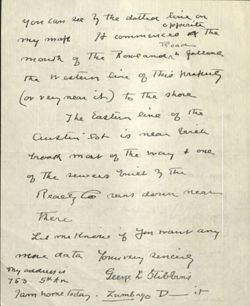 you can see by the dotted line on
my map It commences opposite
mouth of the Rowland Road & follows
the Western line of this property
(or very near it) to the shore
The Eastern line of the
Austin lot is near
most of the way & one
of the sewers built by the
Realty Co runs down near
there
Let me know if you want any
more data Yours very sincerely
My address is George L Stebbins
753 5th Av
I am home today. Lumbago D—— it